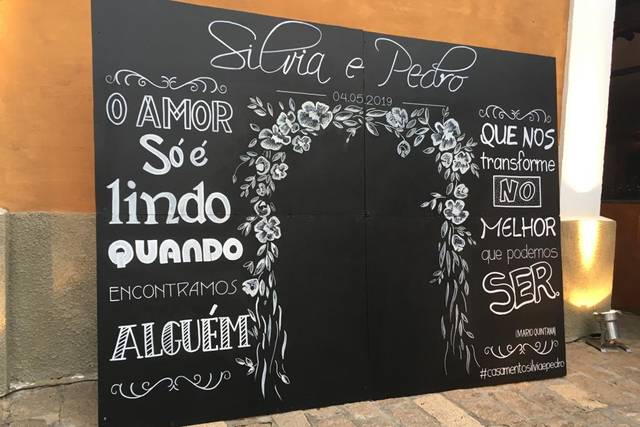 Silvia e Pedro
04.05.2019
O AMOR
Só é
lindo
QUANDO
ENCONTRAMOS
ALGUÉM
QUE NOS
transforme
NO
MELHOR
que podemos
SER.
(MARIO QUINTANA)
#casamentosilviaepedro